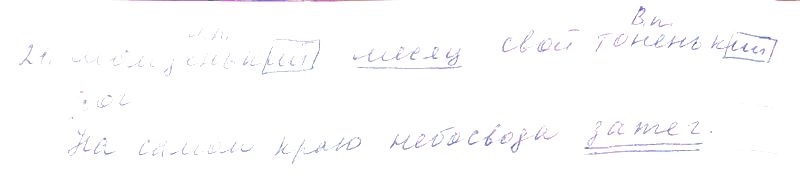 И.п. В.п.
21. молоденький месяц свой тоненький
рог
На самом краю небосвода зажег.